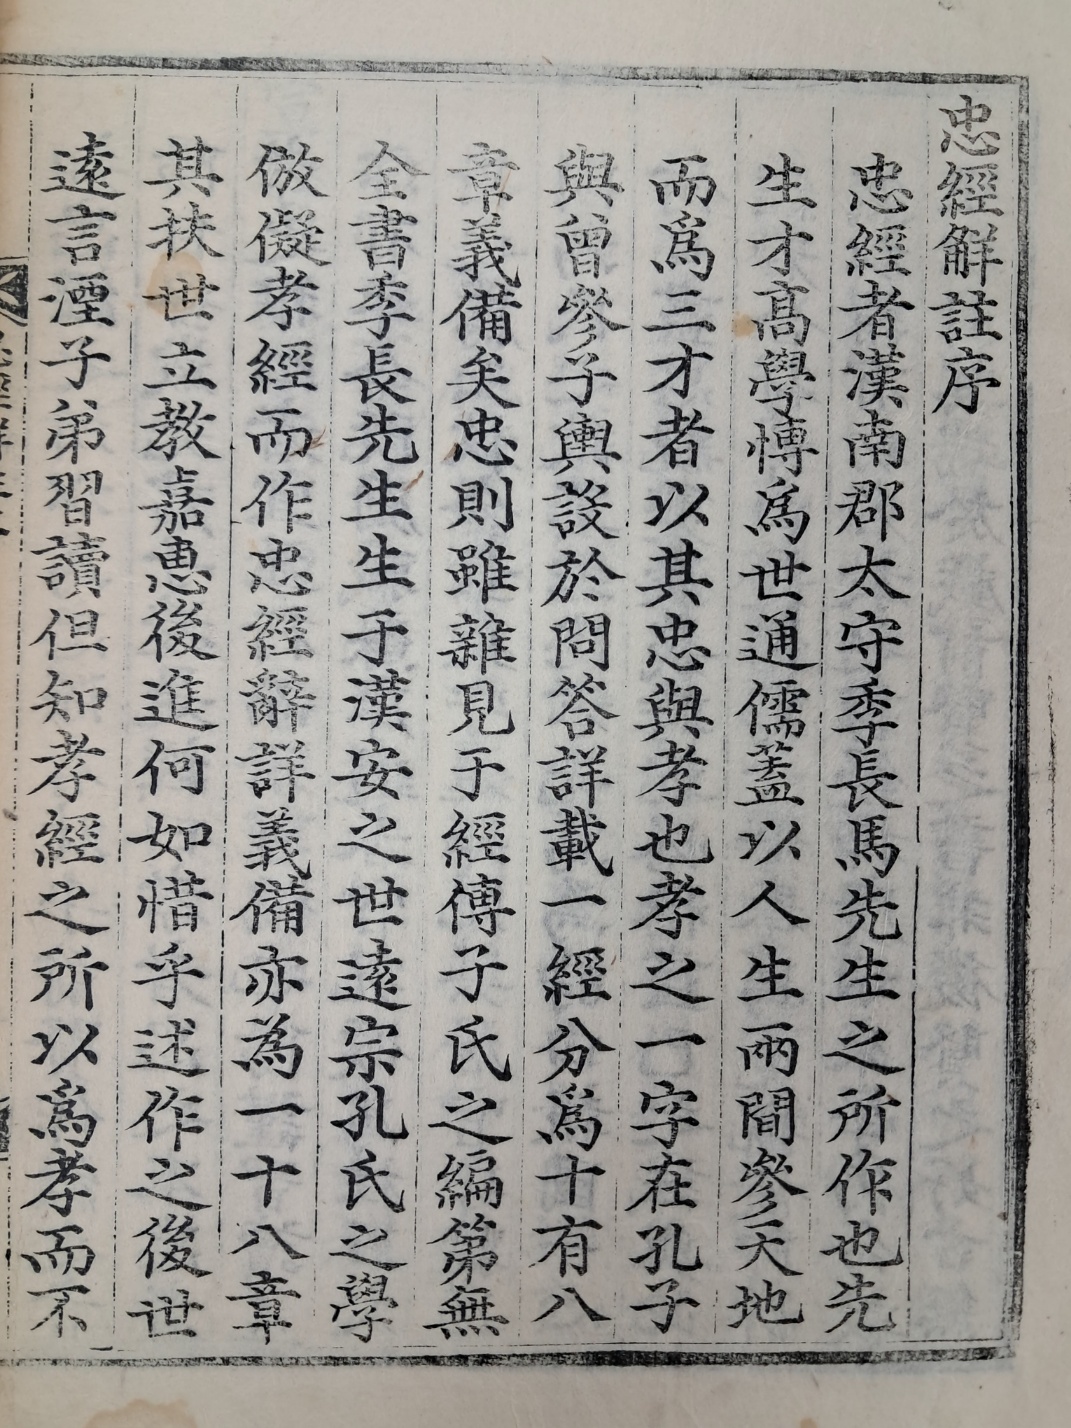 忠經解註序
忠經者漢南郡太守季長馬先生之所作也先
生才高學博爲世通儒蓋以人生兩間參天地
而爲三才者以其忠與孝也孝之一字在孔子
與曾參子輿設於問答詳載一經分爲十有八
章義備矣忠則雖雜見于經傳子氏之編第無
全書季長先生生于漢安之世遠宗孔氏之學
倣儗孝經而作忠經辭詳義備亦為一十八章
其扶世立教嘉惠後進何如惜乎述作之後世
遠言湮子弟習讀但知孝經之所以爲孝而不